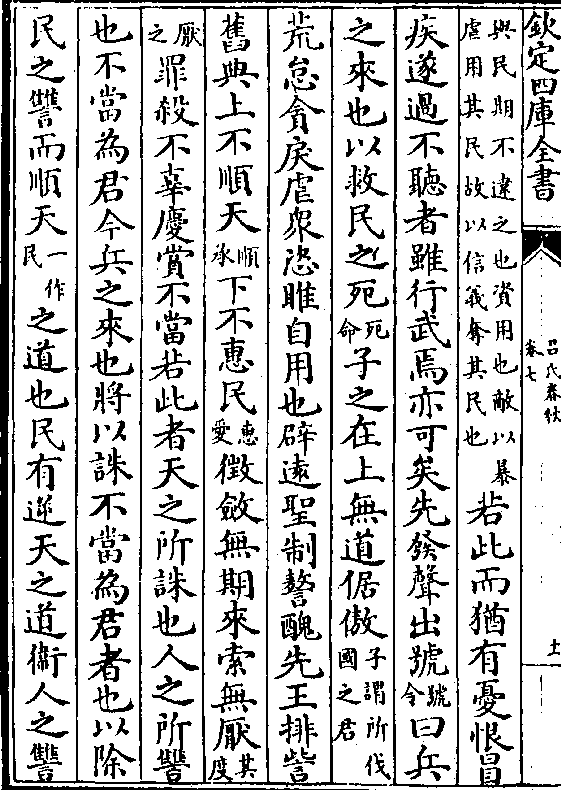 欽定四庫全書 呂氏春秋 卷七 十一
與民期不違之也資用也敵以暴虐用其民故以信義奪其民也若此而猶有憂恨冒
疾遂過不聽者雖行武焉亦可矣先發聲出號號令曰兵
之來也以救民之死死命子之在上無道倨傲子謂所伐國之君
荒怠貪戾虐衆恣睢自用也辟遠聖制謷醜先王排訾
舊典上不順天順承下不惠民惠愛徵斂無期來索無厭其度
厭之罪殺不辜慶賞不當若此者天之所誅也人之所讐
也不當為君今兵之來也將以誅不當為君者也以除
民之讐而順天一作民之道也民有逆天之道衛人之讐